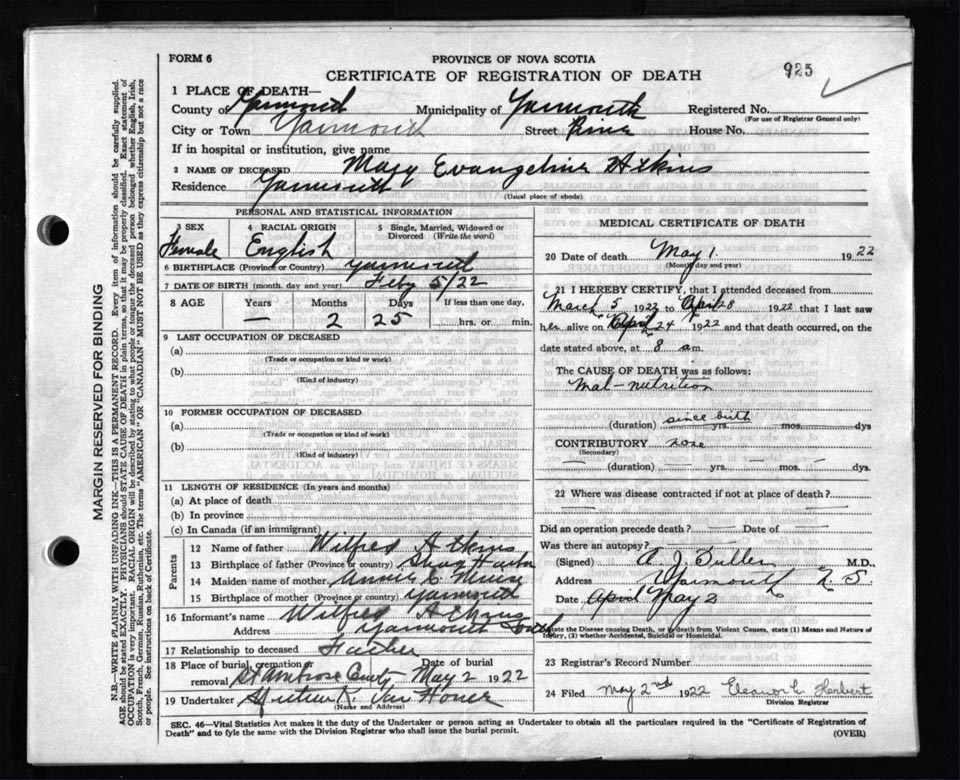 FORM 6
PROVINCE OF NOVA SCOTIA
CERTIFICATE OF REGISTRATION OF DEATH
925
1 PLACE OF DEATH—
County of Yarmouth Municipality of Yarmouth Registered No.
(For use of Registrar General only)
City or Town Yarmouth Street House No.
If in hospital or institution, give name
2 NAME OF DECEASED Mary Evangeline Atkins
Residence Yarmouth
(Usual place of abode)
PERSONAL AND STATISTICAL INFORMATION
3 SEX 4 RACIAL ORIGIN 5 Single, Married, Widowed or Divorced (Write the word)
Female English
6 BIRTHPLACE (Province or Country) Yarmouth
7 DATE OF BIRTH (month, day and year) Feby 5/22
8 AGE Years Months Days If less than one day,
— 2 25 hrs. or min.
9 LAST OCCUPATION OF DECEASED
(a)
(Trade or occupation or kind or work)
(b)
(Kind of industry)
10 FORMER OCCUPATION OF DECEASED
(a)
(Trade or occupation or kind of work)
(b)
(Kind of industry)
11 LENGTH OF RESIDENCE (In years and months)
(a) At place of death
(b) In province
(c) In Canada (if an immigrant)
Parents
12 Name of father Wilfred Atkins
13 Birthplace of father (Province or country) Shag Harbor
14 Maiden name of mother Annie
15 Birthplace of mother (Province or country) Yarmouth
16 Informant's name Wilfred Atkins
Address Yarmouth South
17 Relationship to deceased Father
18 Place of burial, cremation or removal St Ambrose Cemty Date of burial May 2 1922
19 Undertaker K. Van Horne
(Name and Address)
MEDICAL CERTIFICATE OF DEATH
20 Date of death May 1. 1922
(Month, day and year)
21 I HEREBY CERTIFY, that I attended deceased from
March 5 1922 to April 28 1922 that I last saw
her alive on April 24 1922 and that death occurred, on the
date stated above, at 8 a.m.
The CAUSE OF DEATH was as follows:
Mal-nutrition
(duration) since birth yrs. mos. dys
CONTRIBUTORY none
(Secondary)
(duration) — yrs. — mos. — dys.
22 Where was disease contracted if not at place of death?
Did an operation precede death? — Date of —
Was there an autopsy?
(Signed) A. J. Fuller M.D.,
Address Yarmouth N.S.
Date April May 2
State the Disease causing Death, or in death from Violent Causes, state (1) Means and Nature of
Injury, (2) whether Accidental, Suicidal or Homicidal.
23 Registrar's Record Number
24 Filed May 2nd 1922 Eleanor L. Herbert
Division Registrar
SEC. 46—Vital Statistics Act makes it the duty of the Undertaker or person acting as Undertaker to obtain all the particulars required in the "Certificate of Registration of
Death" and to fyle the same with the Division Registrar who shall issue the burial permit.
(OVER)
MARGIN RESERVED FOR BINDING
N.B.—WRITE PLAINLY WITH UNFADING INK—THIS IS A PERMANENT RECORD. Every item of information should be carefully supplied.
AGE should be stated EXACTLY. PHYSICIANS should STATE CAUSE OF DEATH in plain terms, so that it may be properly classified. Exact statement of
OCCUPATION is very important. RACIAL ORIGIN will be described by stating to what people or tongue the deceased person belonged whether English, Irish,
Scotch, French, German, Russian, Ruthenian, etc. The terms "AMERICAN" OR "CANADIAN" MUST NOT BE USED as they express citizenship but not a race
or people. See instructions on back of Certificate.